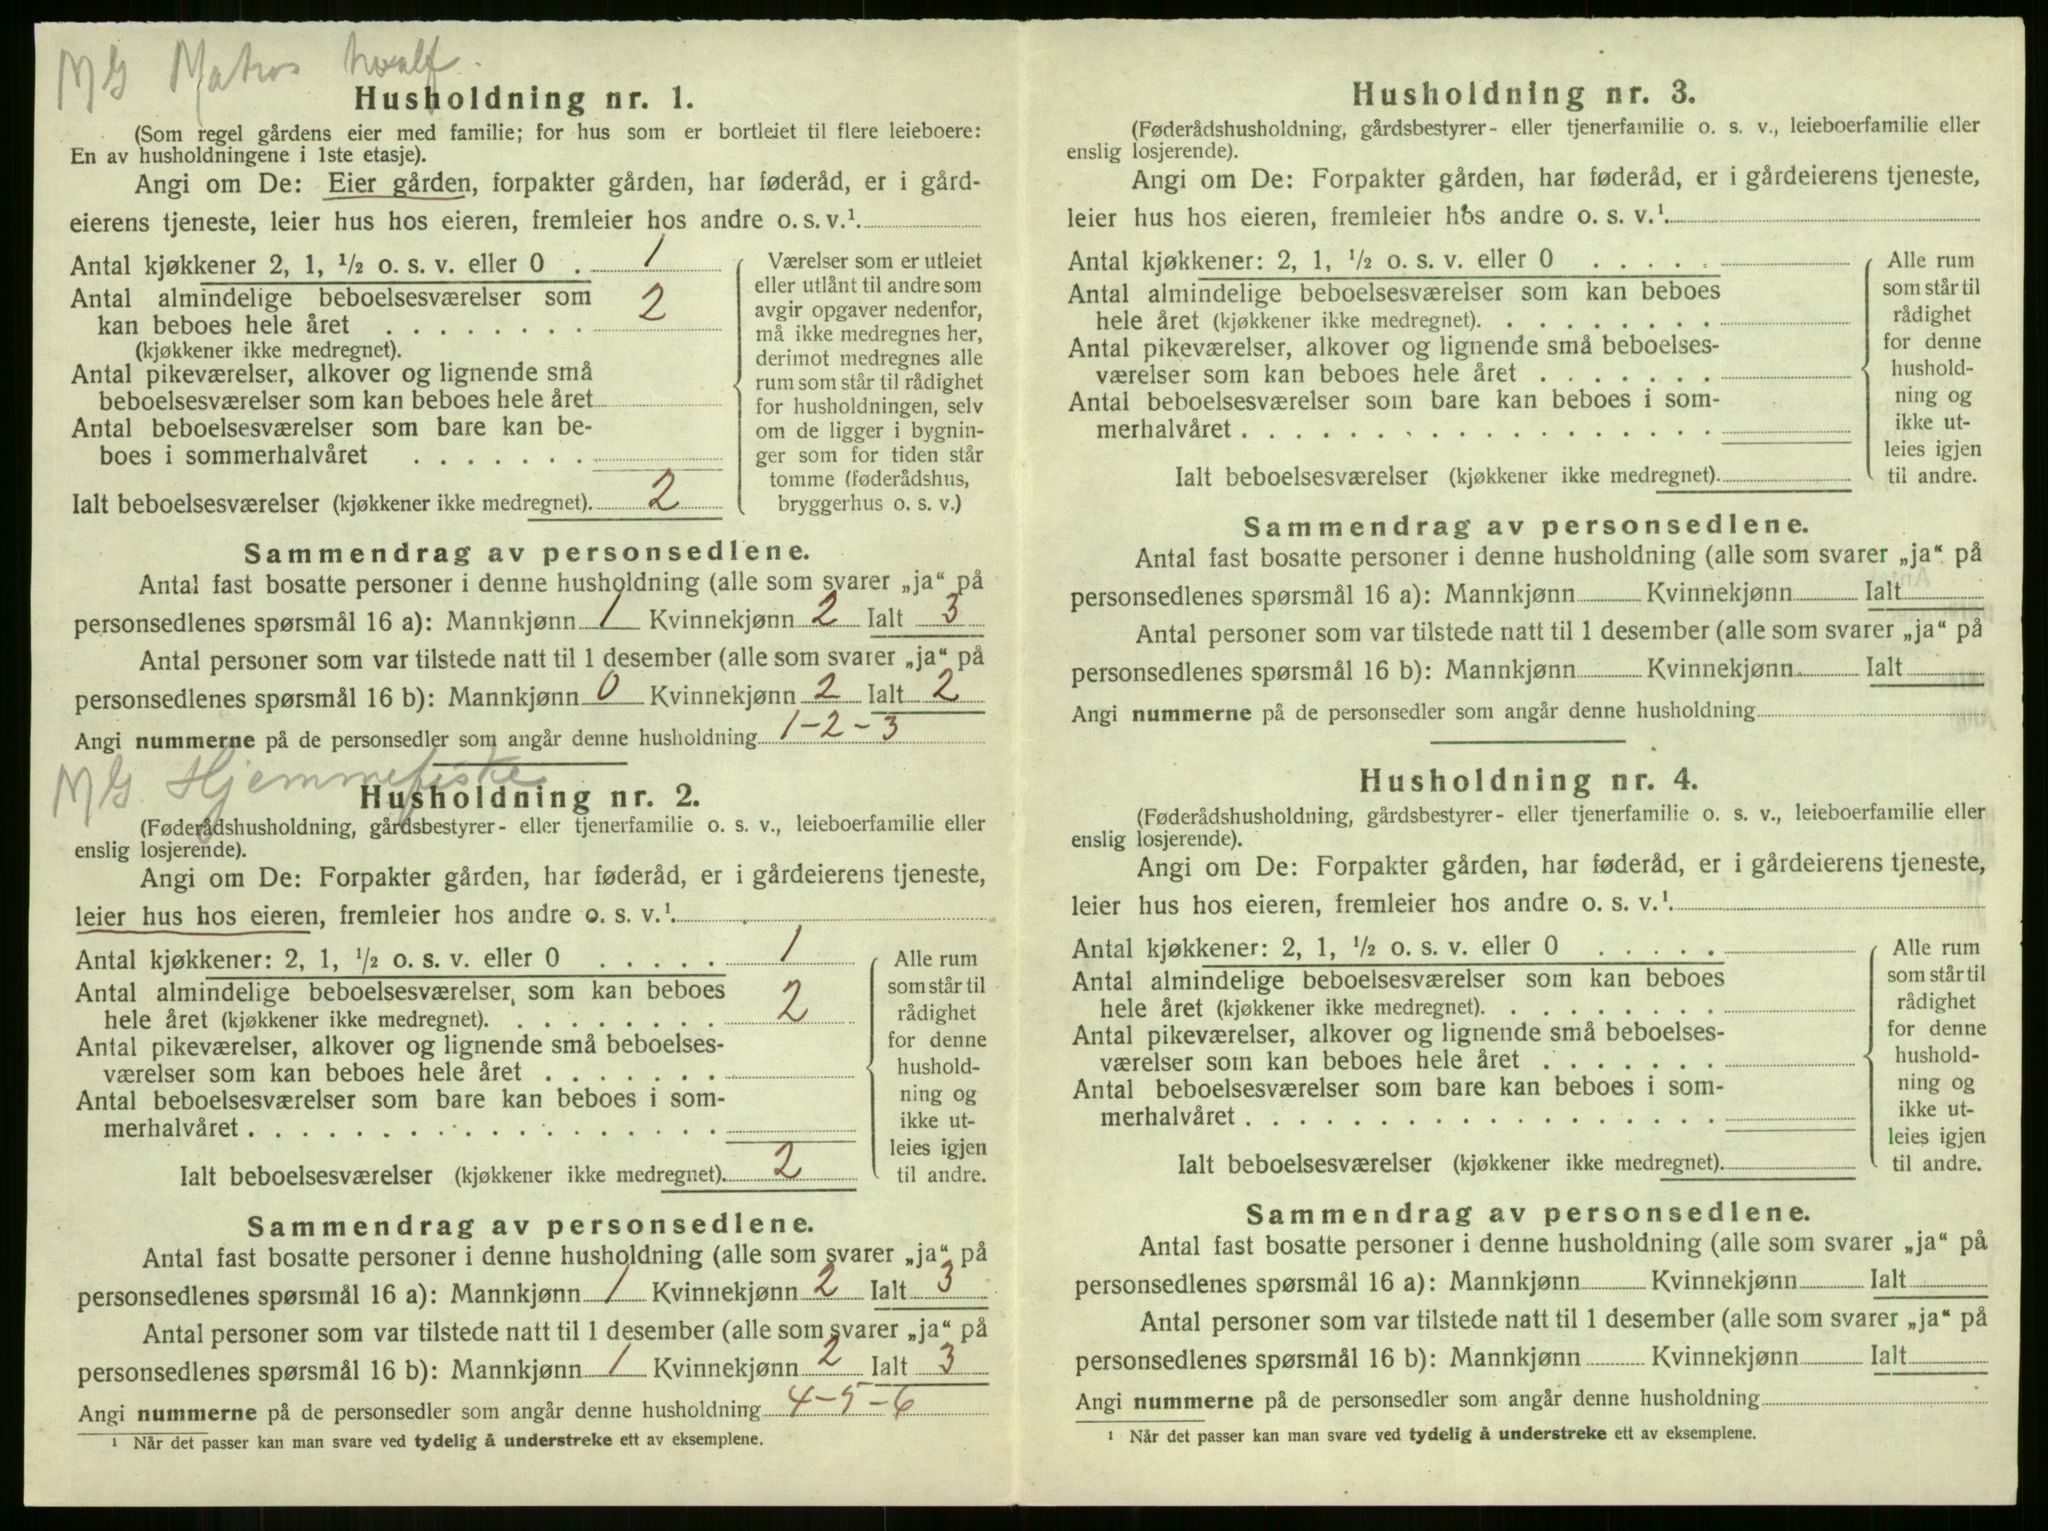 MG Matros hvalf.
Husholdning nr. 1.
(Som regel gårdens eier med familie; for hus som er bortleiet til flere leieboere:
En av husholdningene i 1ste etasje).
Angi om De: Eier gården, forpakter gården, har føderåd, er i gård-
eierens tjeneste, leier hus hos eieren, fremleier hos andre o. s. v.¹.
Antal kjøkkener 2, 1, ½ o. s. v. eller 0 . 1
Antal almindelige beboelsesværelser som
kan beboes hele året . . . . . . . . 2
(kjøkkener ikke medregnet).
Antal pikeværelser, alkover og lignende små
beboelsesværelser som kan beboes hele året
Antal beboelsesværelser som bare kan be-
boes i sommerhalvåret . . . . . . .
Ialt beboelsesværelser (kjøkkener ikke medregnet). 2
Værelser som er utleiet
eller utlånt til andre som
avgir opgaver nedenfor,
må ikke medregnes her,
derimot medregnes alle
rum som står til rådighet
for husholdningen, selv
om de ligger i bygnin-
ger som for tiden står
tomme (føderådshus,
bryggerhus o. s. v.)
Sammendrag av personsedlene.
Antal fast bosatte personer i denne husholdning (alle som svarer „ja“ på
personsedlenes spørsmål 16 a): Mannkjønn 1 Kvinnekjønn 2 Ialt 3
Antal personer som var tilstede natt til 1 desember (alle som svarer „ja“ på
personsedlenes spørsmål 16 b): Mannkjønn 0 Kvinnekjønn 2 Ialt 2
Angi nummerne på de personsedler som angår denne husholdning 1-2-3
MG. Hjemmefiske
Husholdning nr. 2.
(Føderådshusholdning, gårdsbestyrer- eller tjenerfamilie o. s. v., leieboerfamilie eller
enslig losjerende).
Angi om De: Forpakter gården, har føderåd, er i gårdeierens tjeneste,
leier hus hos eieren, fremleier hos andre o. s. v.¹.
Antal kjøkkener: 2, 1, ½ o. s. v. eller 0 . . . . . 1
Antal almindelige beboelsesværelser, som kan beboes
hele året (kjøkkener ikke medregnet). . . . . . . . . 2
Antal pikeværelser, alkover og lignende små beboelses-
værelser som kan beboes hele året . . . . . . .
Antal beboelsesværelser som bare kan beboes i som-
merhalvåret . . . . . . . . . . . . . . . . . .
Ialt beboelsesværelser (kjøkkener ikke medregnet). 2
Alle rum
som står til
rådighet
for denne
hushold-
ning og
ikke ut-
leies igjen
til andre.
Sammendrag av personsedlene.
Antal fast bosatte personer i denne husholdning (alle som svarer „ja“ på
personsedlenes spørsmål 16 a): Mannkjønn 1 Kvinnekjønn 2 Ialt 3
Antal personer som var tilstede natt til 1 desember (alle som svarer „ja“ på
personsedlenes spørsmål 16 b): Mannkjønn 1 Kvinnekjønn 2 Ialt 3
Angi nummerne på de personsedler som angår denne husholdning 4-5-6
¹ Når det passer kan man svare ved tydelig å understreke ett av eksemplene.
Husholdning nr. 3.
(Føderådshusholdning, gårdsbestyrer- eller tjenerfamilie o. s. v., leieboerfamilie eller
enslig losjerende).
Angi om De: Forpakter gården, har føderåd, er i gårdeierens tjeneste,
leier hus hos eieren, fremleier hos andre o. s. v.¹.
Antal kjøkkener: 2, 1, ½ o. s. v. eller 0 . . . . .
Antal almindelige beboelsesværelser som kan beboes
hele året (kjøkkener ikke medregnet). . . . . . . . .
Antal pikeværelser, alkover og lignende små beboelses-
værelser som kan beboes hele året . . . . . . .
Antal beboelsesværelser som bare kan beboes i som-
merhalvåret . . . . . . . . . . . . . . . . . .
Ialt beboelsesværelser (kjøkkener ikke medregnet).
Alle rum
som står til
rådighet
for denne
hushold-
ning og
ikke ut-
leies igjen
til andre.
Sammendrag av personsedlene.
Antal fast bosatte personer i denne husholdning (alle som svarer „ja“ på
personsedlenes spørsmål 16 a): Mannkjønn Kvinnekjønn Ialt
Antal personer som var tilstede natt til 1 desember (alle som svarer „ja“ på
personsedlenes spørsmål 16 b): Mannkjønn Kvinnekjønn Ialt
Angi nummerne på de personsedler som angår denne husholdning
Husholdning nr. 4.
(Føderådshusholdning, gårdsbestyrer- eller tjenerfamilie o. s. v., leieboerfamilie eller
enslig losjerende).
Angi om De: Forpakter gården, har føderåd, er i gårdeierens tjeneste,
leier hus hos eieren, fremleier hos andre o. s. v.¹.
Antal kjøkkener: 2, 1, ½ o. s. v. eller 0 . . . . .
Antal almindelige beboelsesværelser som kan beboes
hele året (kjøkkener ikke medregnet). . . . . . . . .
Antal pikeværelser, alkover og lignende små beboelses-
værelser som kan beboes hele året . . . . . . .
Antal beboelsesværelser som bare kan beboes i som-
merhalvåret . . . . . . . . . . . . . . . . . .
Ialt beboelsesværelser (kjøkkener ikke medregnet).
Alle rum
som står til
rådighet
for denne
hushold-
ning og
ikke ut-
leies igjen
til andre.
Sammendrag av personsedlene.
Antal fast bosatte personer i denne husholdning (alle som svarer „ja“ på
personsedlenes spørsmål 16 a): Mannkjønn Kvinnekjønn Ialt
Antal personer som var tilstede natt til 1 desember (alle som svarer „ja“ på
personsedlenes spørsmål 16 b): Mannkjønn Kvinnekjønn Ialt
Angi nummerne på de personsedler som angår denne husholdning
¹ Når det passer kan man svare ved tydelig å understreke ett av eksemplene.